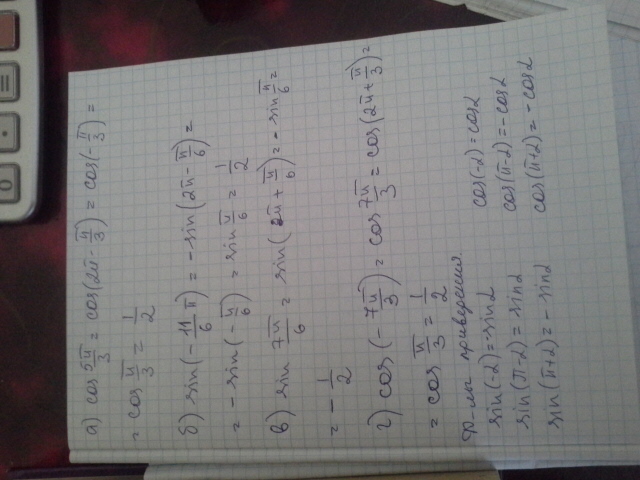 а) cos 5π/3 = cos(2π - π/3) = cos(-π/3) =
= cos π/3 = 1/2
б) sin(-11/6 π) = -sin(2π - π/6) =
= -sin(-π/6) = sin π/6 = 1/2
в) sin 7π/6 = sin(π + π/6) = -sin π/6 =
= -1/2
г) cos(-7π/3) = cos 7π/3 = cos(2π + π/3) =
= cos π/3 = 1/2
Ф-лы приведения
sin(-α) = -sinα cos(-α) = cosα
sin(π-α) = sinα cos(π-α) = -cosα
sin(π+α) = -sinα cos(π+α) = -cosα
0 . =